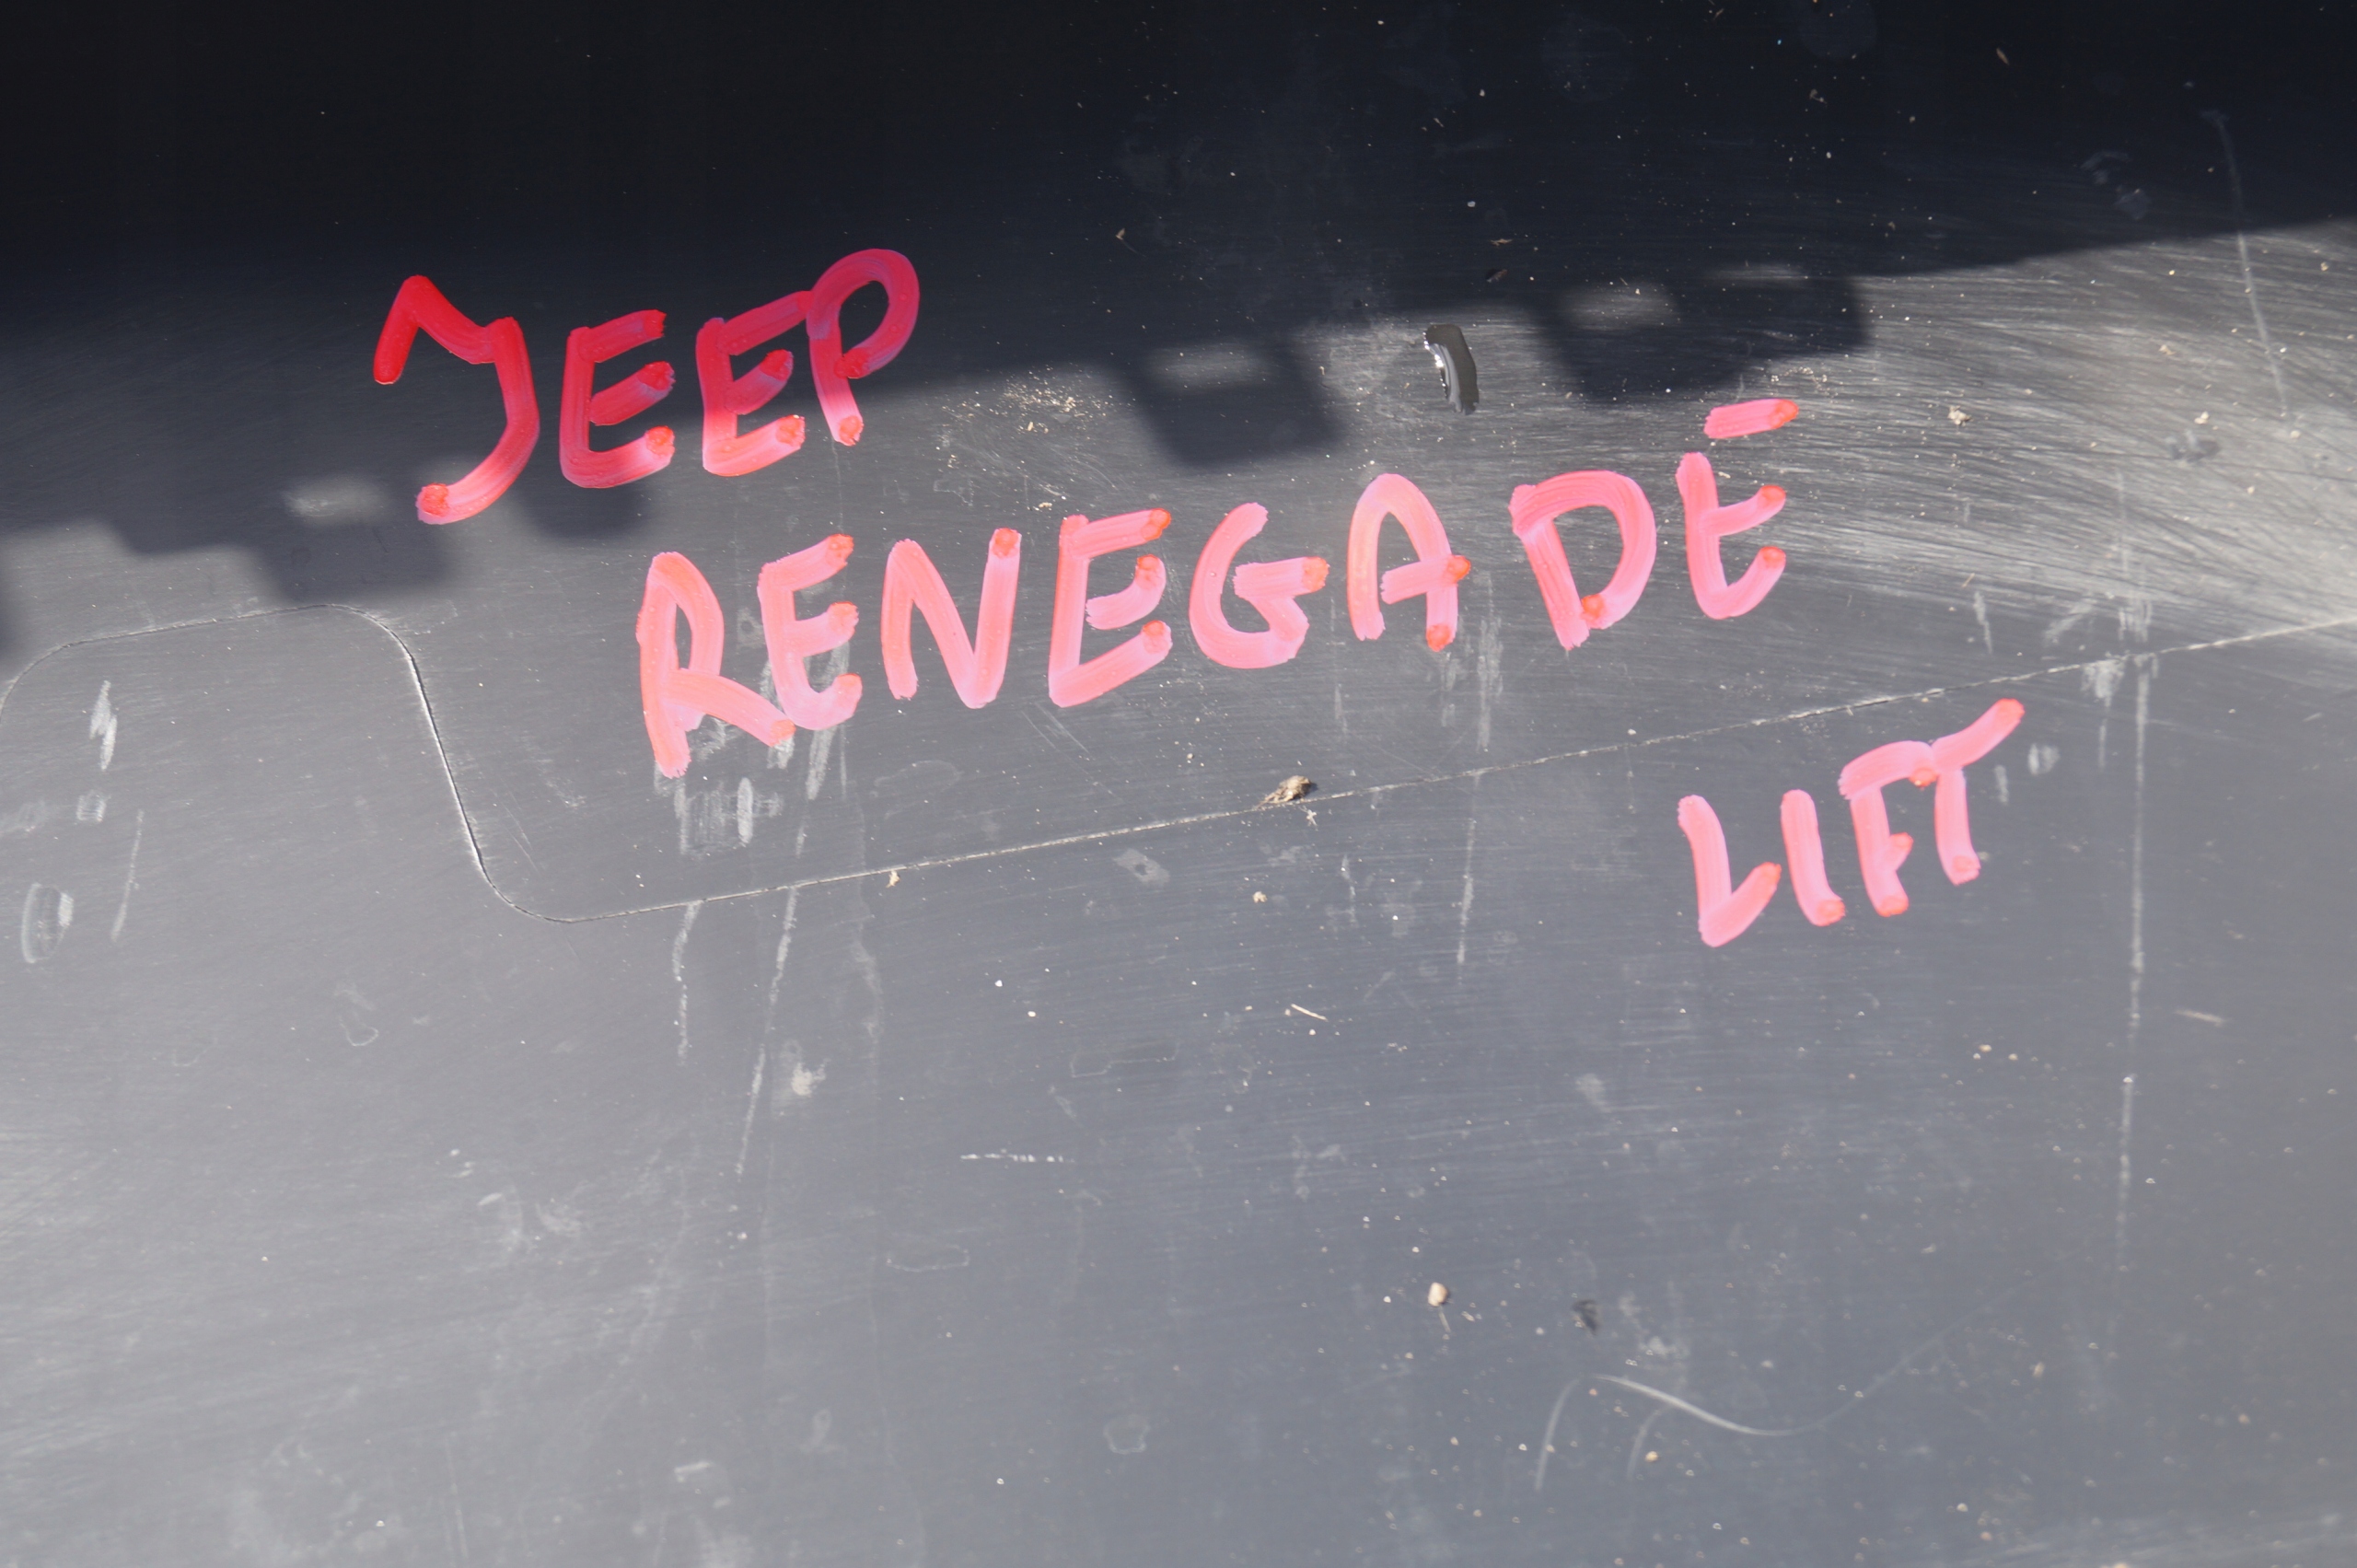 JEEP
RENEGADE
LIFT